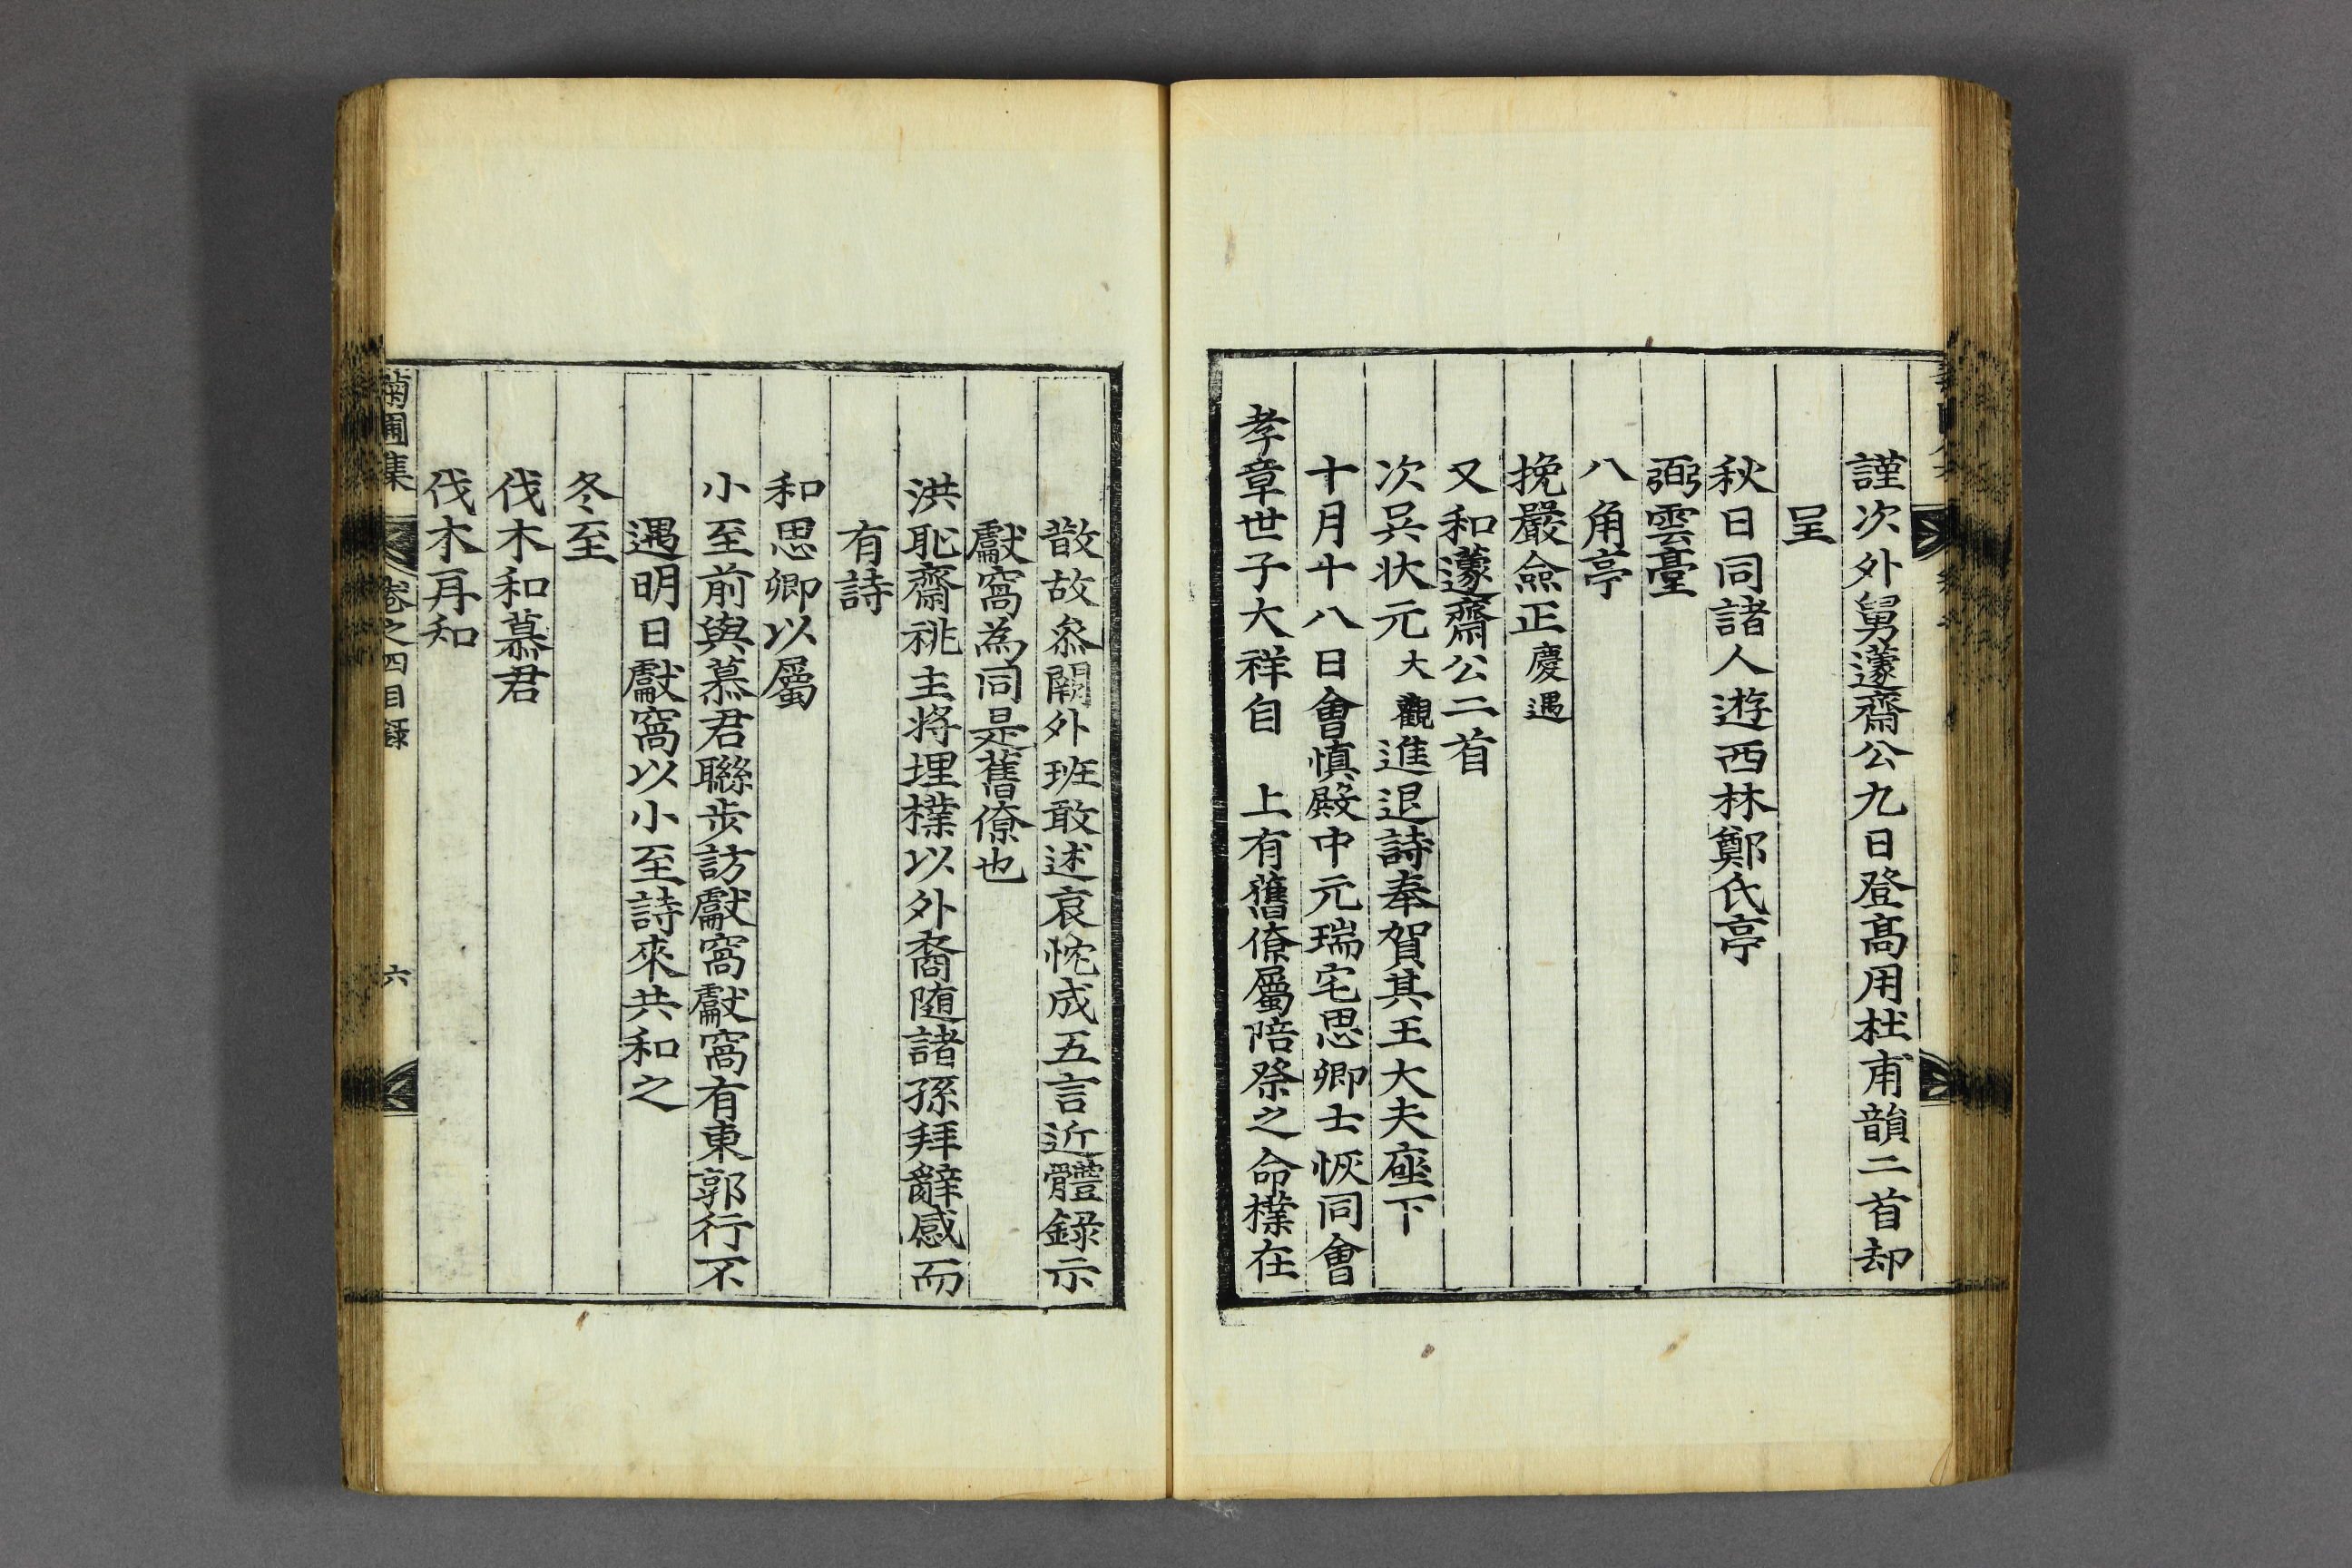 謹次外舅蘧齋公九日登高用杜甫韻二首却
呈
秋日同諸人遊西林鄭氏亭
弼雲臺
八角亭
挽嚴僉正慶遇
又和蘧齋公二首
次吳狀元大觀進退詩奉賀其王大夫座下
十月十八日會愼殿中元瑞宅思卿士恢同會
孝章世子大祥自 上有舊僚屬陪祭之命㰒在
散故叅闕外班敢述哀悰成五言近體錄示
獻窩為同是舊僚也
洪恥齋祧主將埋㰒以外裔随諸孫拜辭感而
有詩
和思卿以屬
小至前與慕君聯步訪獻窩獻窩有東郭行不
遇明日獻窩以小至詩來共和之
冬至
伐木和慕君
伐木再和
菊圃集 卷之四目錄 六